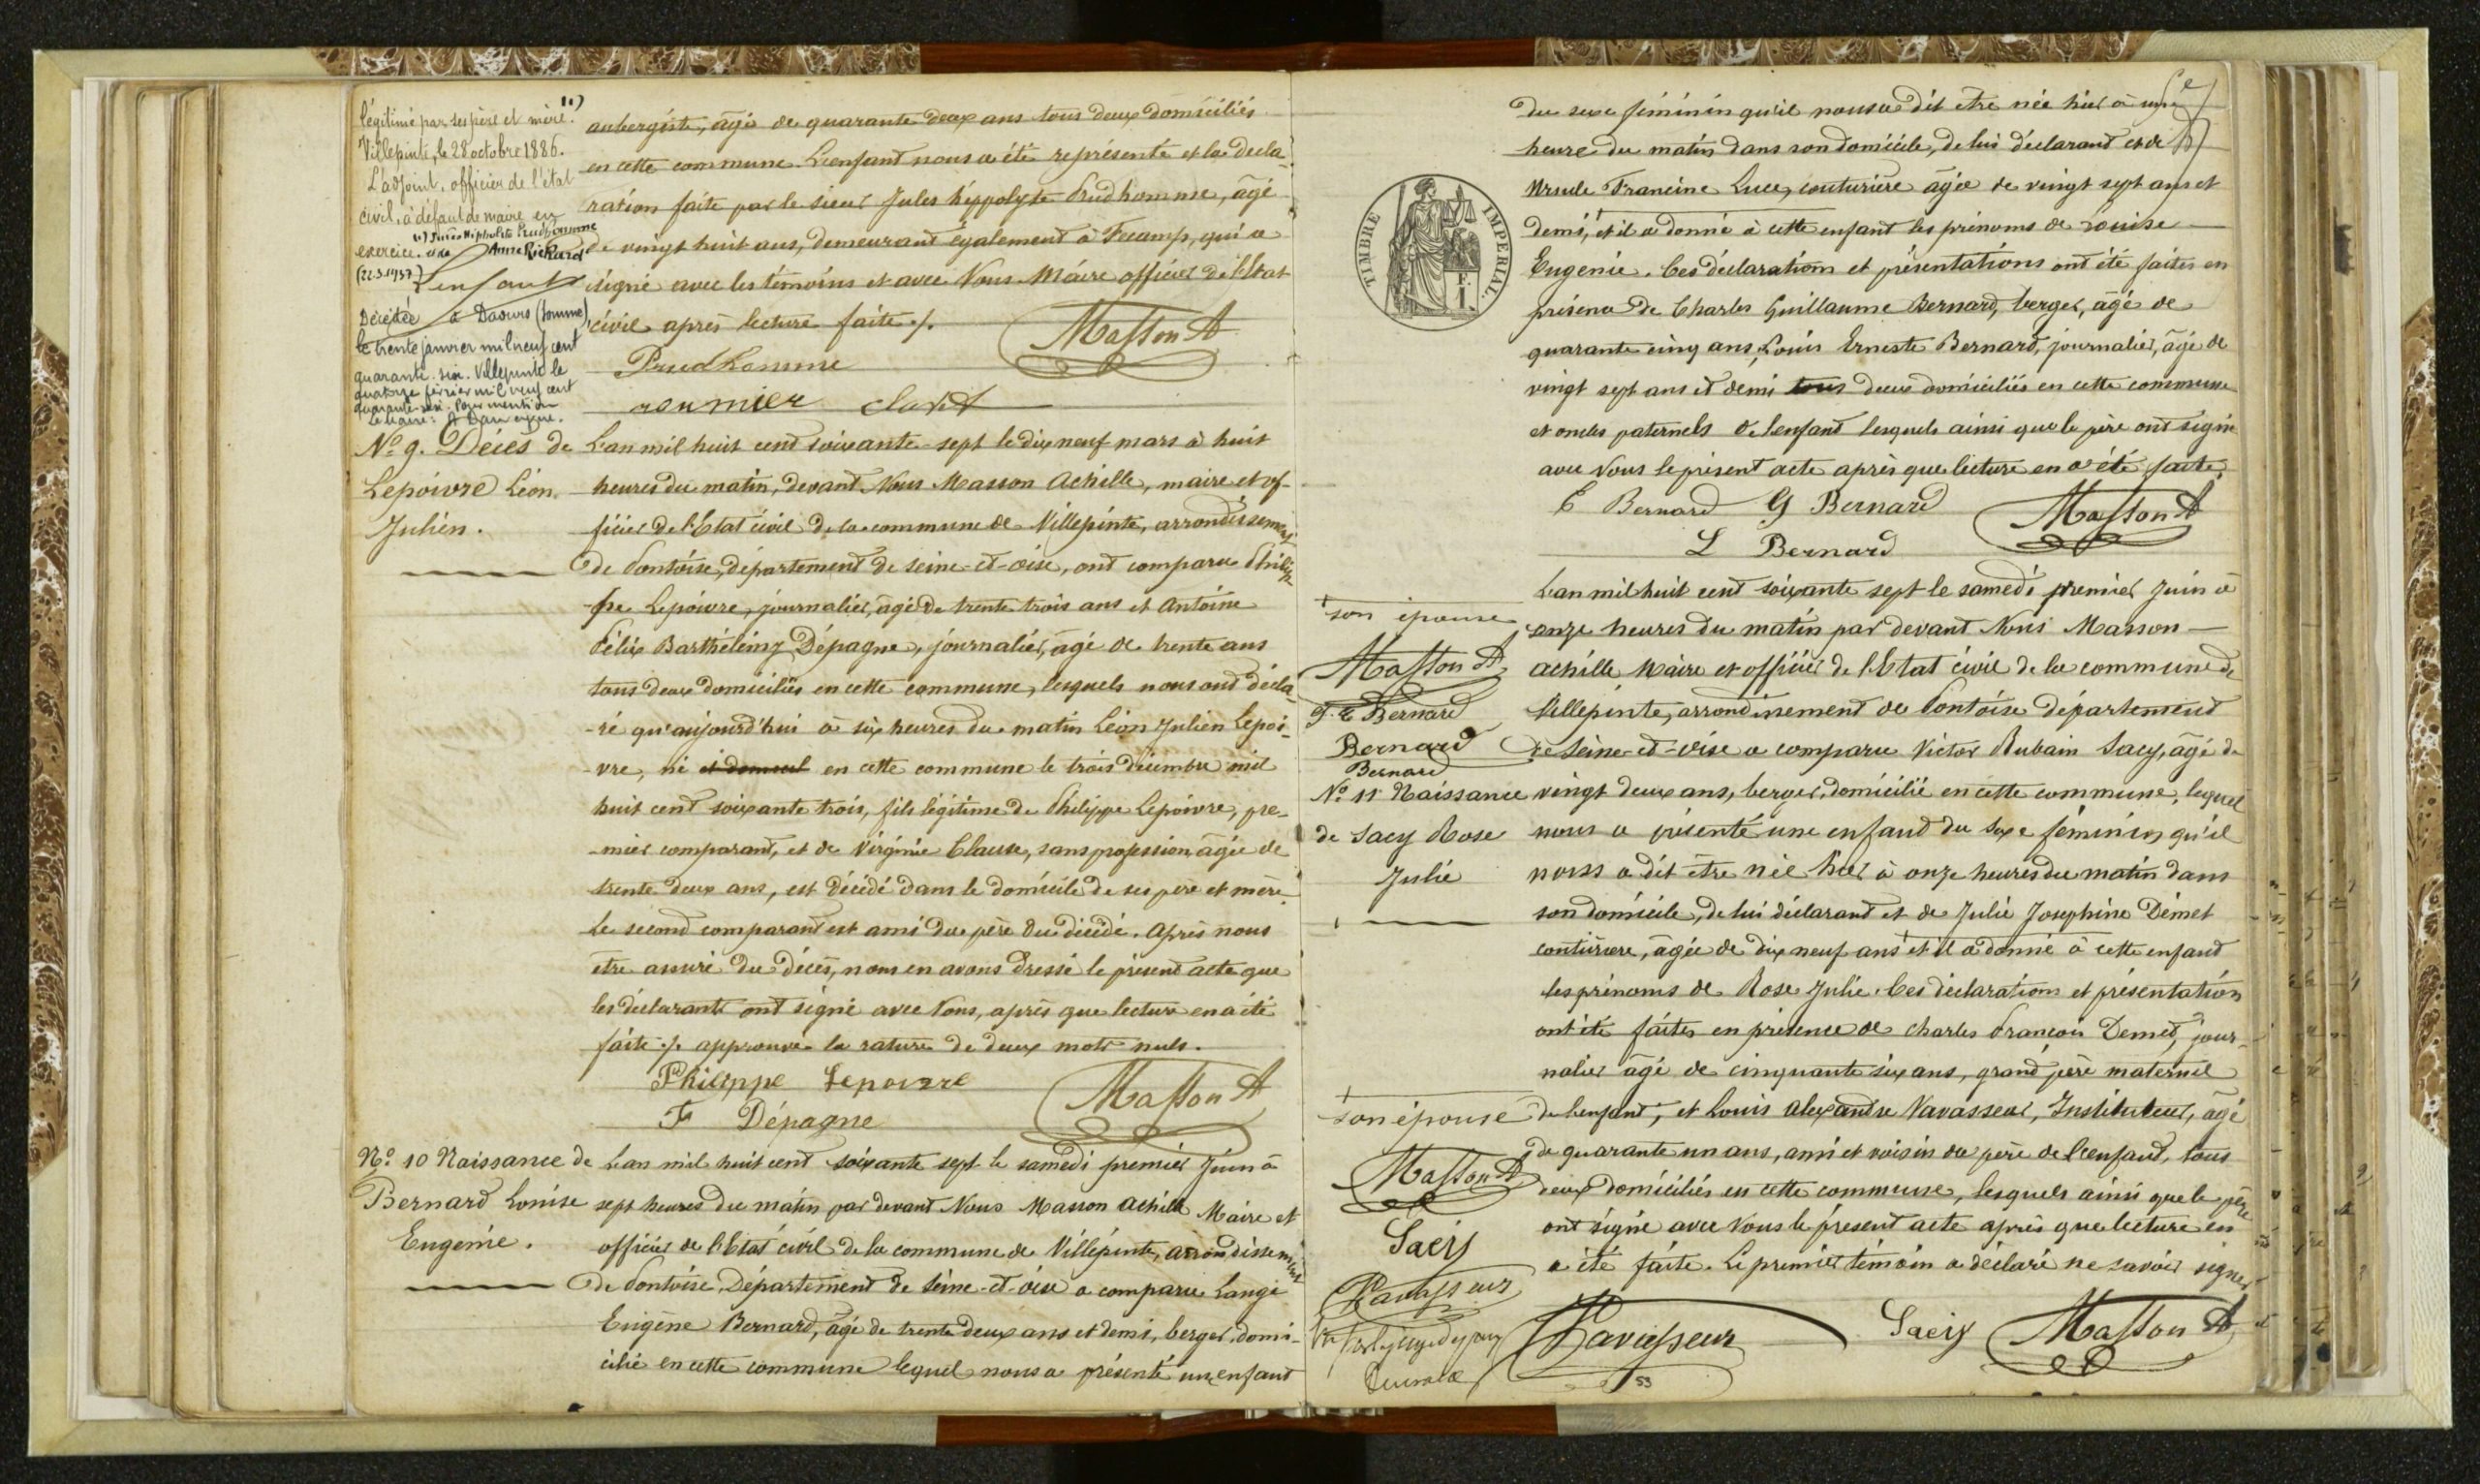 légitimé par ses père et mère. (1)
Villepinte, le 28 octobre 1886.
L'adjoint, officier de l'état
civil, à défaut de maire en
exercice.
(1) Jules Hippolyte Prudhomme
et de Anne Richard
(22.3.1937)
Lenfant
Décédée à Daours (Somme),
le trente janvier mil neuf cent
quarante six. Villepinte le
quatorze février mil neuf cent
quarante six. Pour mention
Le Maire:
aubergiste, âgé de quarante deux ans tous deux domiciliés
en cette commune. L'enfant nous a été représenté et la décla-
ration faite par le sieur Jules hippolyte Prudhomme, âgé
de vingt huit ans, demeurant également à Fecamp, qui a
signé avec les témoins et avec Nous Maire officier de l'Etat
civil après lecture faite ./.
Masson A
Prudhomme
clavet
No. 9. Décès de
Lepoivre Léon
Julien.
L'an mil huit cent soixante-sept le dix neuf mars à huit
heures du matin, devant Nous Masson Achille, maire et of-
ficier de l'Etat civil de la commune de Villepinte, arrondissement
de Pontoise, département de Seine-et-oise, ont comparu Philip-
-pe Lepoivre, journalier, âgé de trente trois ans et Antoine
Félix Barthélémy Dépagne, journalier, âgé de trente ans
tous deux domiciliés en cette commune, lesquels nous ont décla-
-ré qu'aujourd'hui à six heures du matin Léon Julien Lepoi-
-vre, né et domicil en cette commune le trois décembre mil
huit cent soixante trois, fils légitime de Philippe Lepoivre, pre-
-mier comparant, et de Virginie Clause, sans profession âgée de
trente deux ans, est décédé dans le domicile de ses père et mère.
Le second comparant est ami du père du décédé. Après nous
être assuré du décès, nous en avons dressé le présent acte que
les déclarants ont signé avec Nous, après que lecture en a été
faite ./. approuvé la rature de deux mots nuls.
Philippe Lepoivre
Masson A
F Dépagne
No. 10 Naissance de
Bernard Louise
Eugénie.
L'an mil huit cent soixante sept le samedi premier Juin à
sept heures du matin par devant Nous Masson Achille Maire et
officier de l'Etat civil de la commune de Villepinte, arrondissement
de Pontoise, Département de Seine-et-oise a comparu Lange
Eugène Bernard, âgé de trente deux ans et demi, berger, domi-
cilié en cette commune lequel nous a présenté un enfant
TIMBRE IMPERIAL.
du sexe féminin qu'il nous a dit etre née hier à une
heure du matin dans son domicile, de lui déclarant et de
Ursule Francine Luce, couturière âgée de vingt sept ans et
demi, et il a donné à cette enfant les prénoms de Louise
Eugenie. Ces déclarations et présentations ont été faites en
présence de Charles Guillaume Bernard, berger, âgé de
quarante cinq ans, Louis Erneste Bernard, journalier, âgé de
vingt sept ans et demi tous deux domiciliés en cette commune
et oncles paternels de l'enfant lesquels ainsi que le père ont signé
avec Nous le présent acte après que lecture en a été faite.
E Bernard G Bernard
Masson A
L Bernard
son épouse
Masson A
Bernard
Bernard
Bernard
No. 11 Naissance
de Sacy Rose
Julie
L'an mil huit cent soixante sept le samedi premier Juin à
onze heures du matin par devant Nous Masson
achille Maire et officier de l'Etat civil de la commune de
Villepinte, arrondissement de Pontoise département
de Seine-et-oise a comparu Victor Aubain Sacy, âgé de
vingt deux ans, berger, domicilié en cette commune, lequel
nous a présenté une enfant du sexe féminin qu'il
nous a dit être née hier à onze heures du matin dans
son domicile, de lui déclarant et de Julie Josephine Démet
couturière, âgée de dix neuf ans et il a donné à cette enfant
les prénoms de Rose Julie. Ces déclarations et présentation
ont été faites en présence de Charles François Demet, jour-
nalier âgé de cinquante six ans, grand père maternel
de l'enfant, et Louis Alexandre Vavasseur, Instituteur, âgé
de quarante un ans, ami et voisin du père de l'enfant, tous
deux domiciliés en cette commune, lesquels ainsi que le père
ont signé avec Nous le présent acte après que lecture en
a été faite. Le premier témoin a déclaré ne savoir signer
son épouse
Masson A
Sacy
Vavasseur
Vavasseur
Sacy
Masson A
53